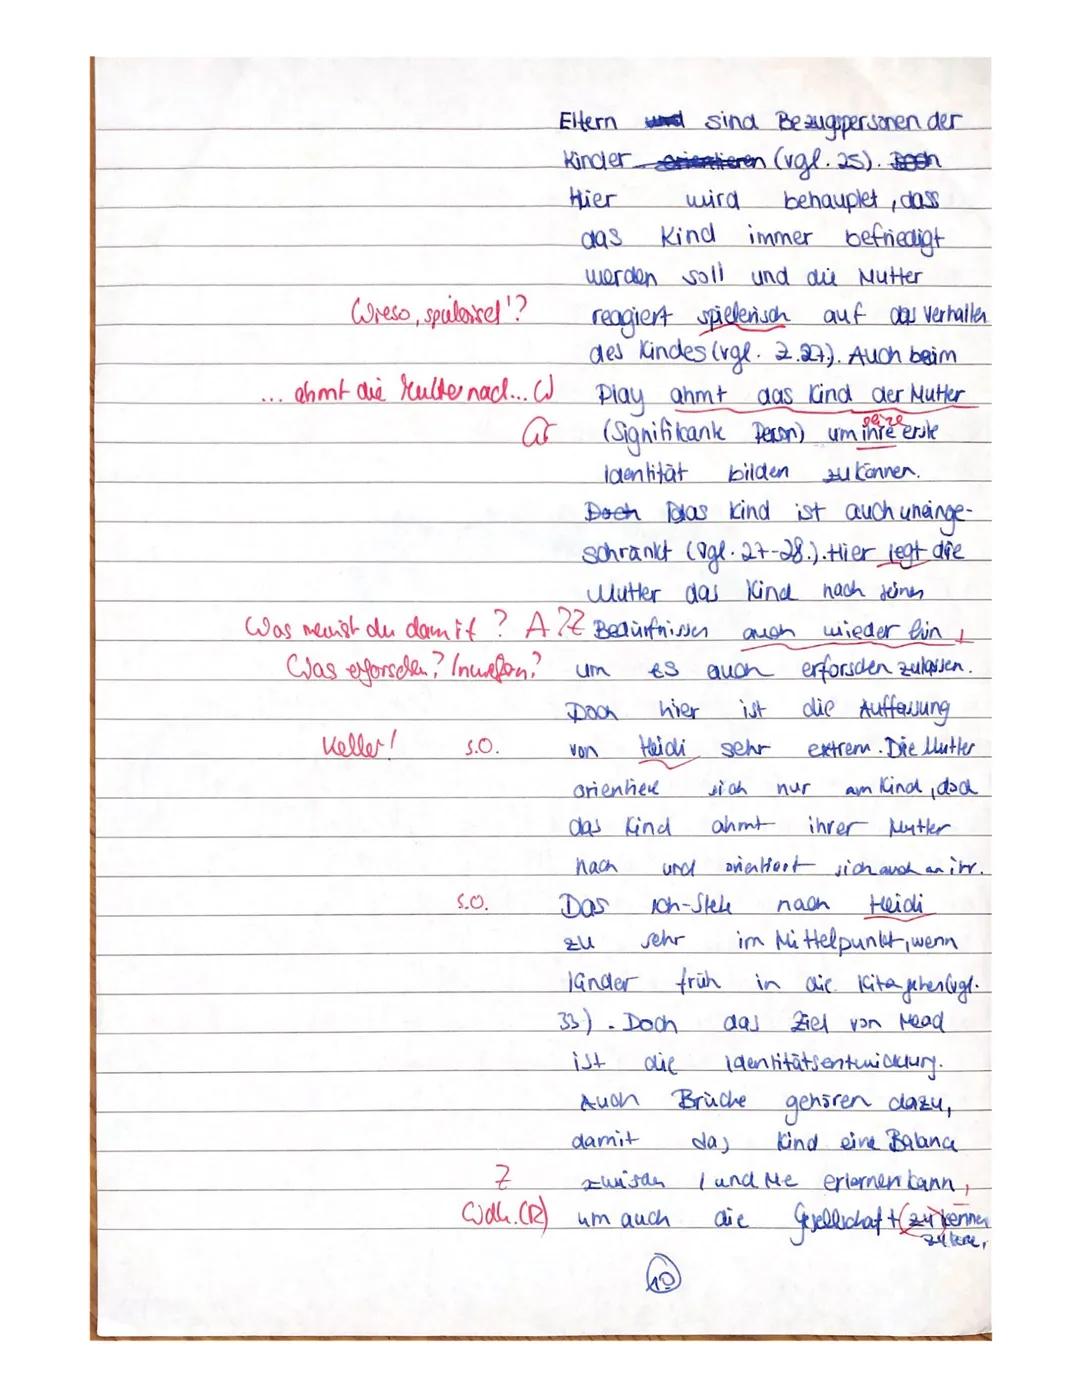 Eltern und sind Bezugspersonen der
Kinder orientieren (vgl. 25). Doch
Hier wird behauptet, dass
das Kind immer befriedigt
werden soll und die Mutter
Wieso, spielerisch'? reagiert spielerisch auf das Verhalten
des Kindes (vgl. Z.27). Auch beim
... ahmt die Mutter nach... W Play ahmt das Kind der Mutter
Gr (Signifikank Person) um ihre seine erste
Identität bilden zu können.
Doch Das Kind ist auch uneinge-
schränkt (vgl. 27-28.). Hier legt die
Mutter das Kind nach seinen
Was meinst du damit? A ?Z Bedürfnissen auch wieder hin,
Was erforschen? Inwiefern? um es auch erforschen zulassen.
Doch hier ist die Auffassung
Keller! s.o. von Heidi sehr extrem. Die Mutter
orientiert sich nur am Kind, doch
das Kind ahmt ihrer Mutter
nach und orientiert sich auch an ihr.
s.o. Das Ich-Steht nach Heidi
zu sehr im Mittelpunkt, wenn
Kinder früh in die Kita gehen (vgl.
33). Doch das Ziel von Mead
ist die Identitätsentwicklung.
Auch Brüche gehören dazu,
damit das Kind eine Balance
Z zwischen I und Me erlernen kann,
Wdh. (R) um auch die Gesellschaft (zu) kennen
10